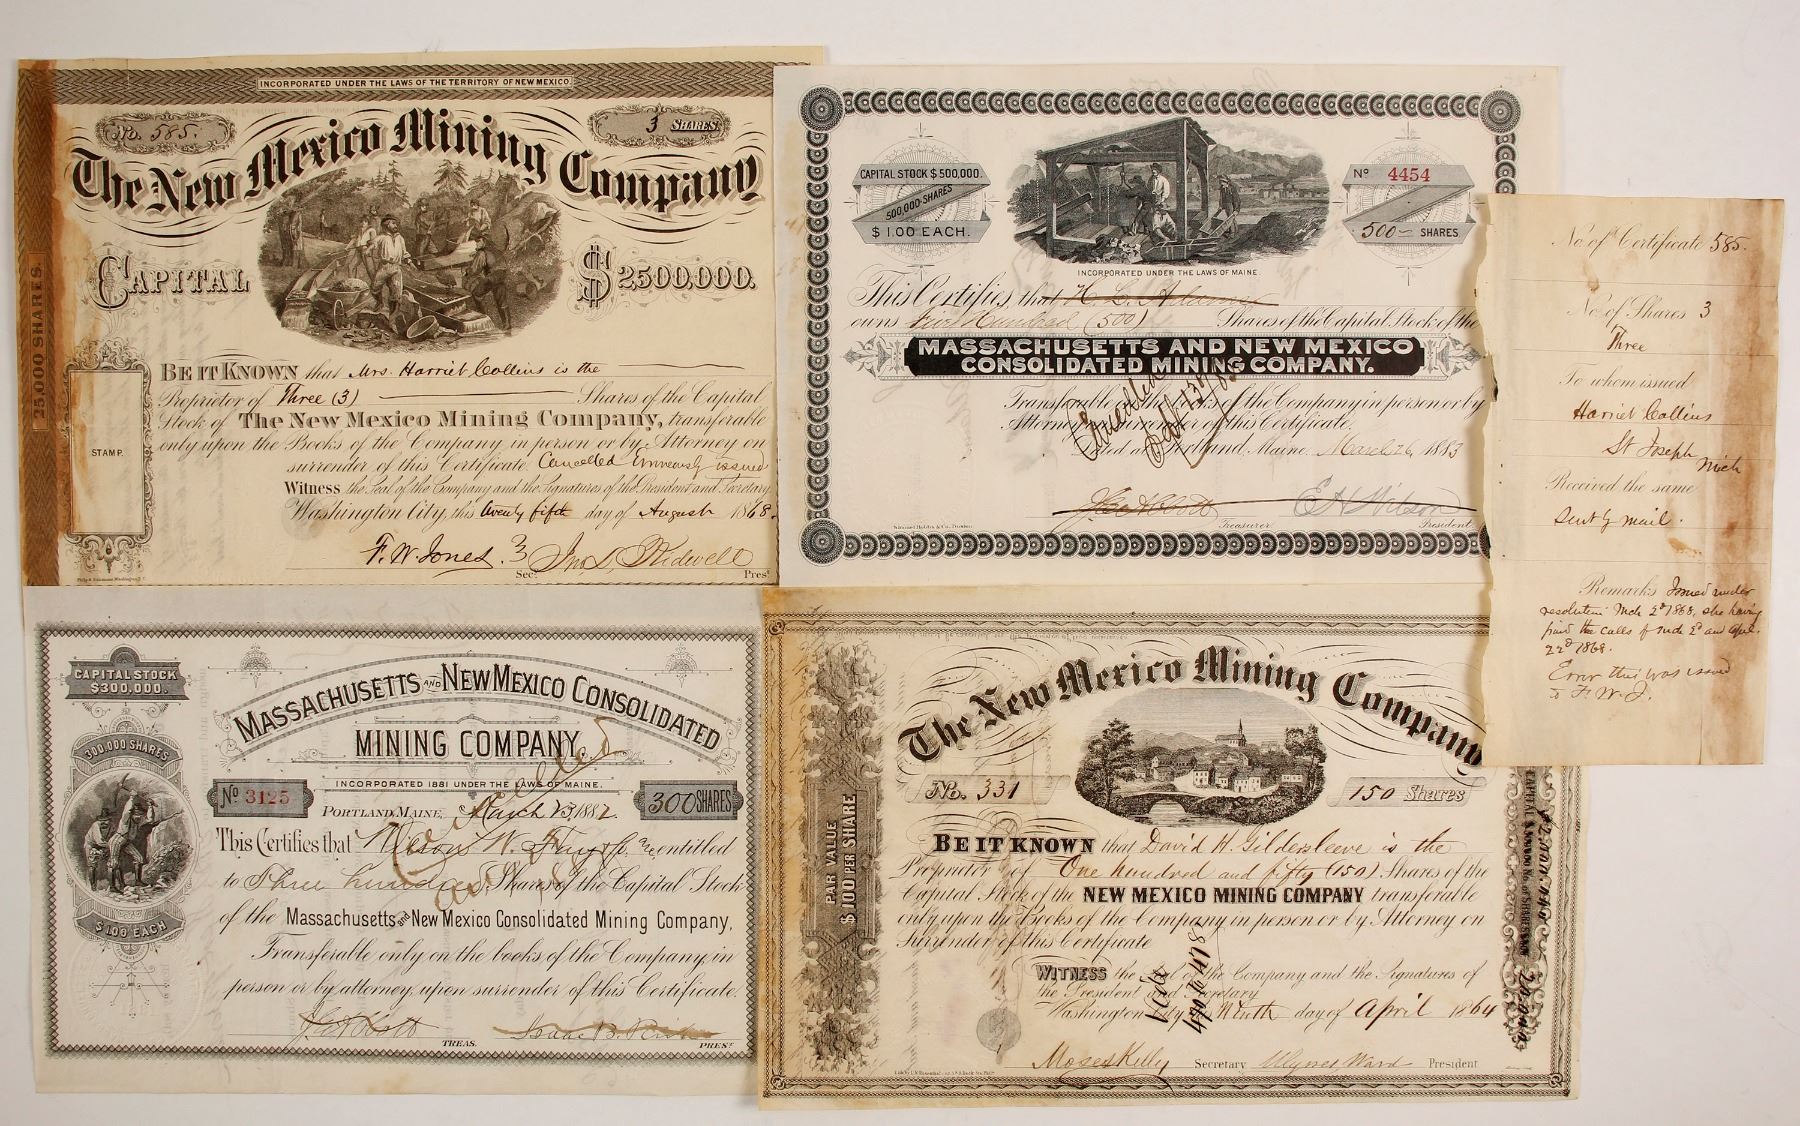 INCORPORATED UNDER THE LAWS OF THE TERRITORY OF NEW MEXICO.
No. 585.
3 SHARES.
The New Mexico Mining Company
CAPITAL $2500,000.
25,000 SHARES.
STAMP.
BE IT KNOWN that Mrs. Harriet Collins is the
Proprietor of Three (3) Shares of the Capital
Stock of The New Mexico Mining Company, transferable
only upon the Books of the Company in person or by Attorney on
surrender of this Certificate. Cancelled Erroneously issued
Witness the Seal of the Company and the Signatures of the President and Secretary.
Washington City, this twenty fifth day of August 1868.
F. W. Jones. Jno. S. Kidwell
Secy. Prest.
CAPITAL STOCK $500,000.
500,000 SHARES
$1.00 EACH.
No 4454
500 SHARES
INCORPORATED UNDER THE LAWS OF MAINE.
This Certifies that H. L. Adams
owns Five Hundred (500) Shares of the Capital Stock of the
MASSACHUSETTS AND NEW MEXICO
CONSOLIDATED MINING COMPANY.
Transferable on the Books of the Company in person or by
Attorney on surrender of this Certificate.
Dated at Portland, Maine, March 26, 1883
Cancelled
E H Wilson
Treasurer President
No of Certificate 585.
No. of Shares 3
Three
To whom issued
Harriet Collins
St Joseph Mich
Received the same
Sent by mail.
Remarks Issued under
resolution Mch 2d 1868, she having
paid the calls of Mch 2d and Apl.
22d 1868.
Error this was issued
to F. W. J.
CAPITAL STOCK
$300,000.
300,000 SHARES
$1.00 EACH
MASSACHUSETTS AND NEW MEXICO CONSOLIDATED
MINING COMPANY.
INCORPORATED 1881 UNDER THE LAWS OF MAINE.
No 3125
300 SHARES
PORTLAND, MAINE, March 23, 1882
Cancelled
This Certifies that Nelson W. entitled
to Three hundred Shares of the Capital Stock
of the Massachusetts and New Mexico Consolidated Mining Company,
Transferable only on the books of the Company, in
person or by attorney, upon surrender of this Certificate.
TREAS. PREST
The New Mexico Mining Company
No. 331
150 Shares
PAR VALUE
$100 PER SHARE
BE IT KNOWN that David H. Gildersleeve is the
Proprietor of One hundred and fifty (150) Shares of the
Capital Stock of the NEW MEXICO MINING COMPANY transferable
only upon the Books of the Company in person or by Attorney on
Surrender of this Certificate
WITNESS the Seal of the Company and the Signatures of
the President and Secretary
Washington City Ninth day of April 1864
Moses Kelly Secretary Ulysses Ward President